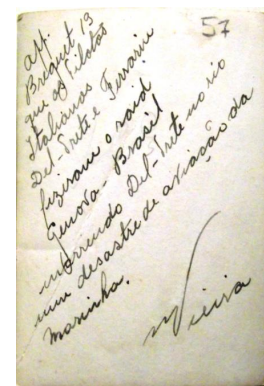 57
app.
Breguet 13
que os Pilotos
Italianos
Del-Prete e Ferrarin
fizeram o raid
Genova-Brasil
morrendo Del-Prete no rio
num desastre de aviação da
Marinha.
Vieira